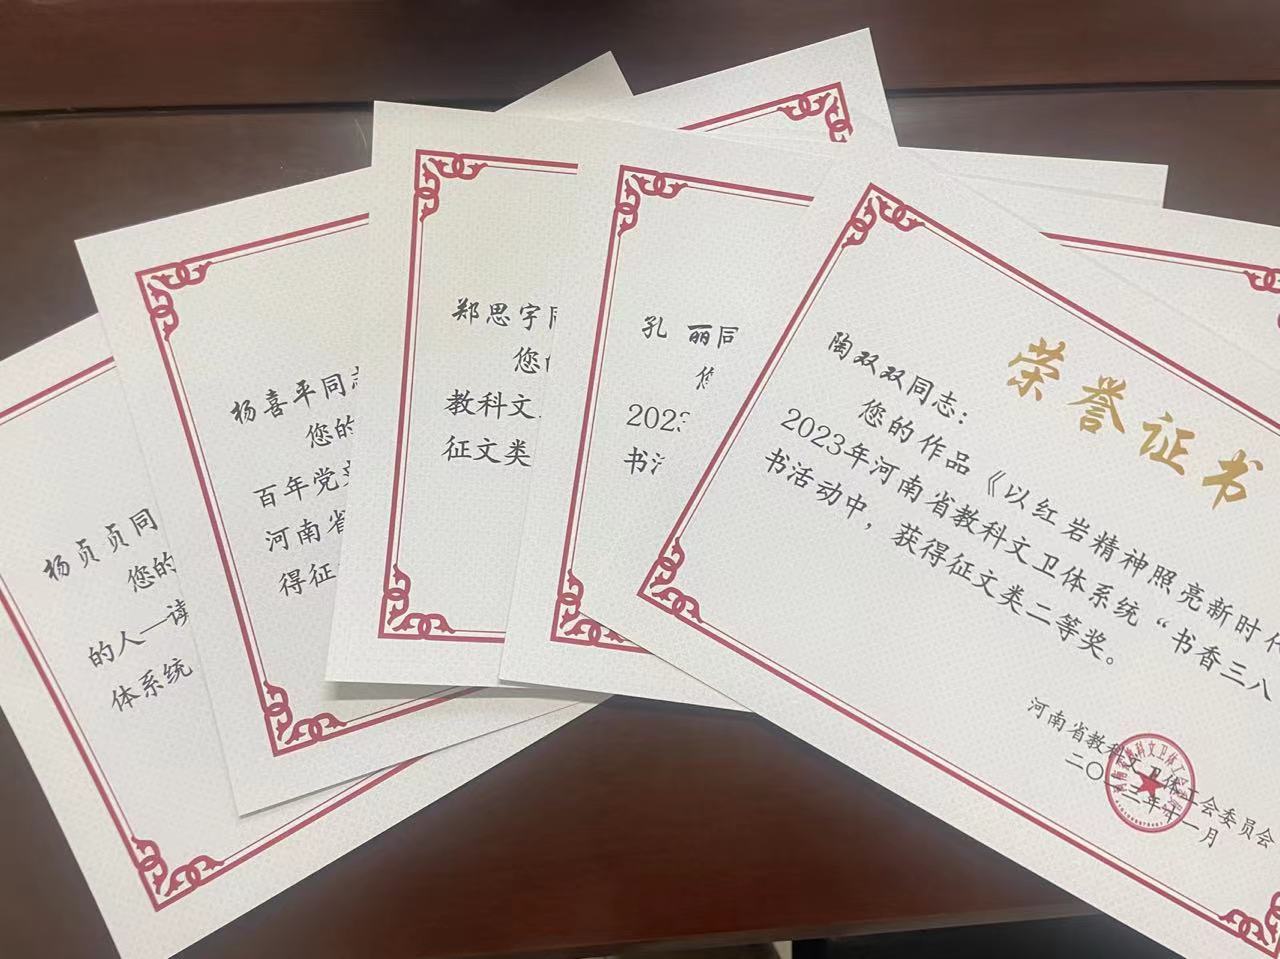 杨贞贞同
您的
的人—读
体系统
杨喜平同志
您的
百年党
河南省
得征
郑思宇同
您的
教科文
征文类
孔 丽同
您
2023
书活
荣誉证书
陶双双同志：
您的作品《以红岩精神照亮新时代
2023年河南省教科文卫体系统“书香三八
书活动中，获得征文类二等奖。
河南省教科文卫体工会委员会
二〇二三年十一月